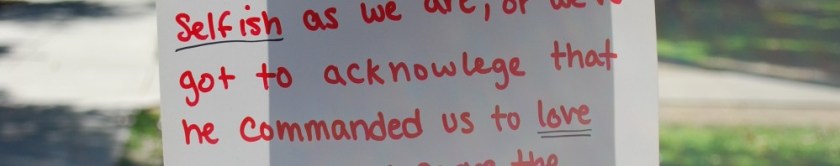 Selfish as we are, or we're
got to acknowlege that
he commanded us to love
the